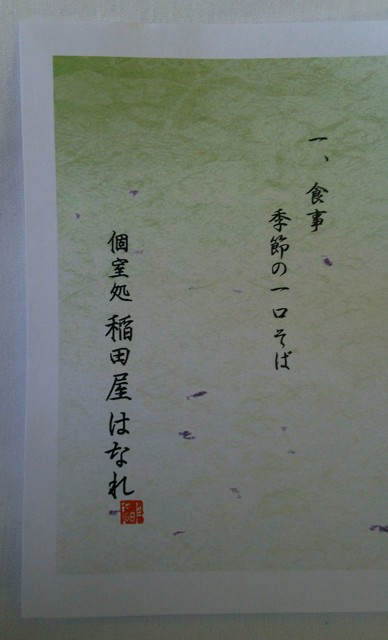 一、食事
季節の一口そば
個室処 稲田屋はなれ